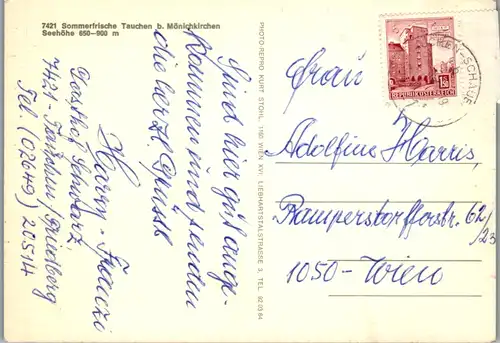 7421 Sommerfrische Tauchen b. Mönichkirchen
Seehöhe 650-900 m
Sind hier gut ange-
kommen und senden
die herzl. Grüsse
Harry - Franzi
Gasthof Schwarz
7421-Tauchen/Friedberg
Tel. (02649) 26514
PHOTO-REPRO KURT STOHL, 1160 WIEN XVI, LIEBHARTSTALSTRASSE 3, TEL. 92 03 84
Frau
Adolfine Harris,
Rampersdorfferstr. 62/
/23
1050-Wien
REPUBLIK ÖSTERREICH